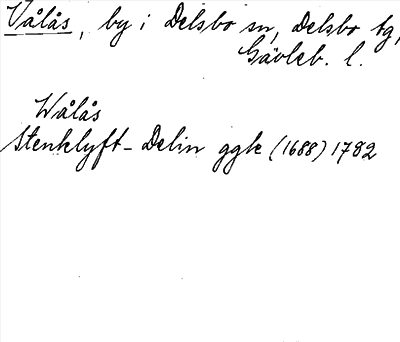 Vålås, by i Delsbo sn, Delsbo tg,
Gävleb. l.
Wålås
Stenklyft-Delin ggk (1688) 1792